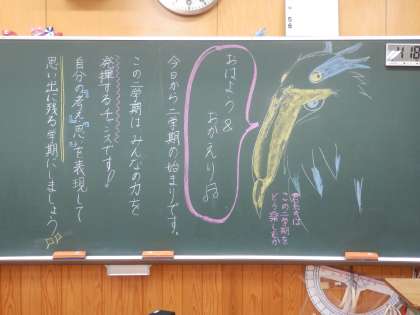 君たちは
この二学期を
どう楽しむか
おはよう&
おかえり♫
今日から二学期の始まりです。
この二学期は みんなの力を
発揮するチャンスです!
自分の『考え』『思い』を表現して
思い出に残る学期にしましょう
18